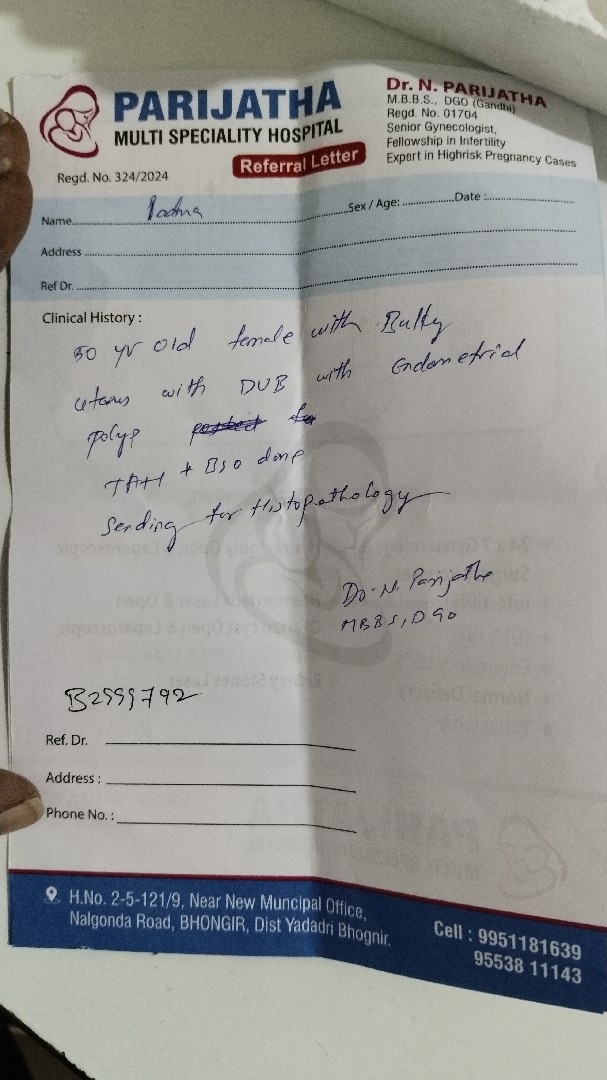 PARIJATHA
MULTI SPECIALITY HOSPITAL
Referral Letter
Regd. No. 324/2024
Dr. N. PARIJATHA
M.B.B.S., DGO (Gandhi)
Regd. No. 01704
Senior Gynecologist,
Fellowship in Infertility
Expert in Highrisk Pregnancy Cases
Name Padma Sex / Age: Date :
Address
Ref Dr.
Clinical History :
50 yr old female with Bulky
uterus with DUB with Endometrial
polyp
TAH + BSO done
Sending for Histopathology
Dr. N. Parijatha
MBBS, DGO
B2999792
Ref. Dr.
Address :
Phone No. :
H.No. 2-5-121/9, Near New Muncipal Office,
Nalgonda Road, BHONGIR, Dist Yadadri Bhognir.
Cell : 9951181639
95538 11143